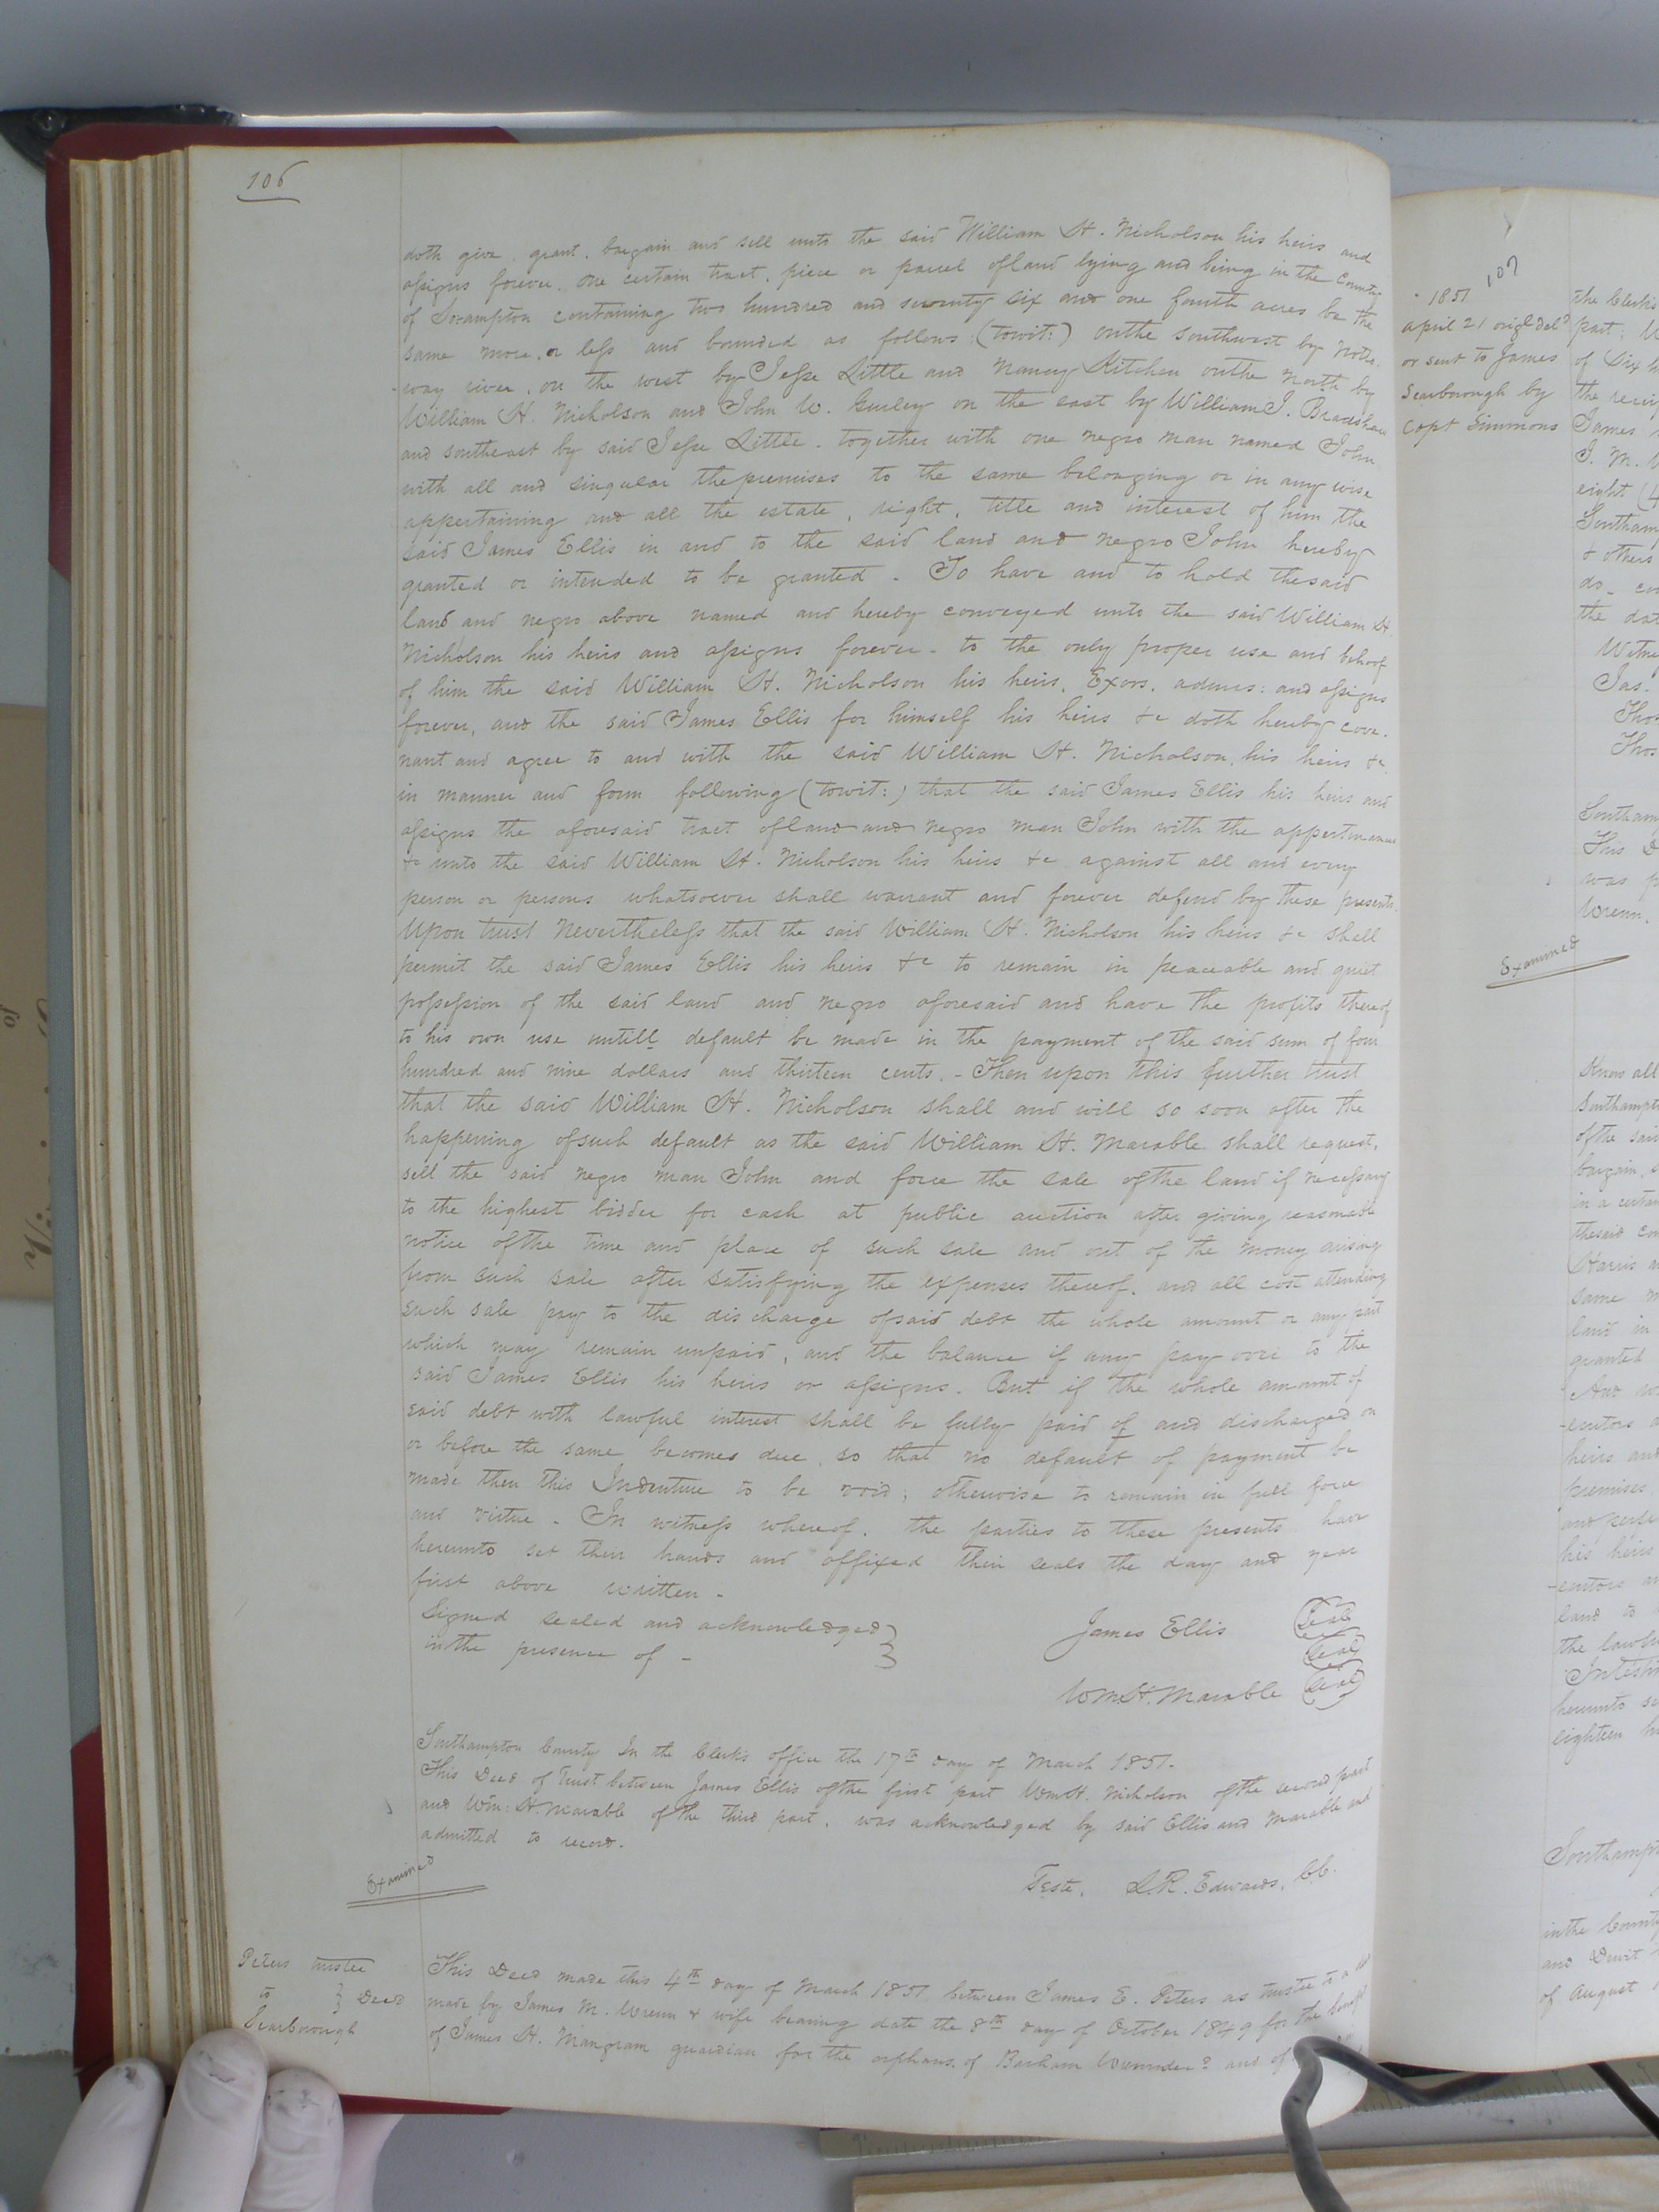 106
doth give, grant, bargain and sell unto the said William H. Nicholson his heirs and
assigns forever, one certain tract, piece or parcel of land lying and being in the County
of Soampton containing two hundred and seventy six and one fourth acres be the
same more or less and bounded as follows (towit:) on the southwest by Notto-
-way river, on the west by Jesse Little and Nancy Kitchen on the North by
William H. Nicholson and John W. Gurley on the east by William J. Bradshaw
and southeast by said Jesse Little. together with one negro man named John
with all and singular the premises to the same belonging or in any wise
appertaining and all the estate, right, title and interest of him the
said James Ellis in and to the said land and negro John hereby
granted or intended to be granted. To have and to hold the said
land and negro above named and hereby conveyed unto the said William H.
Nicholson his heirs and assigns forever. to the only proper use and behoof
of him the said William H. Nicholson his heirs, Exors, admrs: and assigns
forever, and the said James Ellis for himself his heirs &c doth hereby cove-
nant and agree to and with the said William H. Nicholson, his heirs &c
in manner and form following (towit:) that the said James Ellis his heirs and
assigns the aforesaid tract of land and negro man John with the appertenances
&c unto the said William H. Nicholson his heirs &c against all and every
person or persons whatsoever shall warrant and forever defend by these presents.
Upon trust Nevertheless that the said William H. Nicholson his heirs &c shall
permit the said James Ellis his heirs &c to remain in peaceable and quiet
possession of the said land and negro aforesaid and have the profits thereof
to his own use untill default be made in the payment of the said sum of four
hundred and nine dollars and thirteen cents. - Then upon this further trust
that the said William H. Nicholson shall and will so soon after the
happening of such default as the said William H. Marable shall request,
sell the said negro man John and force the sale of the land if necessary
to the highest bidder for cash at public auction after giving reasonable
notice of the time and place of such sale and out of the money arising
from such sale after satisfying the expenses thereof, and all cost attending
such sale pay to the discharge of said debt the whole amount or any part
which may remain unpaid, and the balance if any pay over to the
said James Ellis his heirs or assigns. But if the whole amount of
said debt with lawful interest shall be fully paid of and discharged on
or before the same becomes due, so that no default of payment be
made then this Indenture to be void, otherwise to remain in full force
and virtue - In witness whereof, the parties to these presents have
hereunto set their hands and affixed their seals the day and year
first above written -
Signed sealed and acknowledged }
in the presence of -
James Ellis (seal)
(seal)
Wm. H. Marable (seal)
Southampton County In the Clerk's office the 17th day of March 1851.
This Deed of Trust between James Ellis of the first part Wm H. Nicholson of the second part
and Wm: H. Marable of the third part, was acknowledged by said Ellis and Marable and
admitted to record.
Teste, L.R. Edwards, C.C.
Examined
Peters trustee
to } Deed
Scarborough
This Deed made this 4th day of March 1851 between James E. Peters as trustee to a
made by James M. Wrenn & wife bearing date the 8th day of October 1849 for the benefit
of James H. Mangram guardian for the orphans of Barham and of
107
1851
april 21 origl deld
or sent to James
Scarborough by
Capt Simmons
the Clerks
part,
of Six
the
James
J. M.
eight
Southam
& others
do.
the dat
Witne
Jas.
Thos
Thos
Southam
This D
was p
Wrenn.
Examined
Know all
Southampt
of the said
bargain,
in a certain
the said
Harris
same m
land in
granted
And
-cutors
heirs and
premises
and perso
his heirs
-cutors an
land to
the lawfu
In testim
hereunto
eighteen h
Southampt
in the County
and Dewit
of August